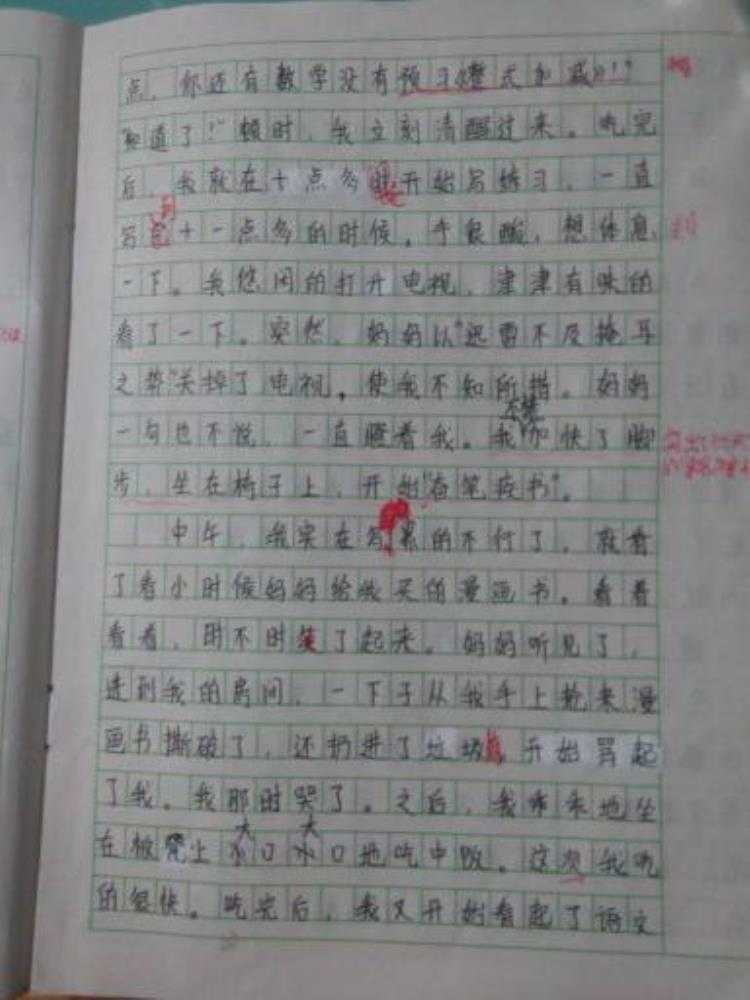 点,你还有数学没有预习《整式加减》!"
知道了!"顿时,我立刻清醒过来。吃完
后,我就在十点多时开始写练习,一直
到
写到十一点多的时候。手很酸,想休息
一下。我悠闲的打开电视,津津有味的
看了一下。突然,妈妈以"迅雷不及掩耳
之势"关掉了电视,使我不知所措。妈妈
一句也不说,一直瞪着我。我加快了脚
步,坐在椅子上,开始"奋笔疾书"。
中午,我实在写累的不行了,就看
了看小时候妈妈给我买的漫画书。看着
看着,时不时笑了起来。妈妈听见了,
进到我的房间,一下子从我手上抢来漫
画书撕破了,还扔进了垃圾,开始骂起
了我。我那时哭了。之后,我乖乖地坐
大 大
在板凳上小口小口地吃中饭。这次我吃
的很快。吃完后,我又开始看起了语文